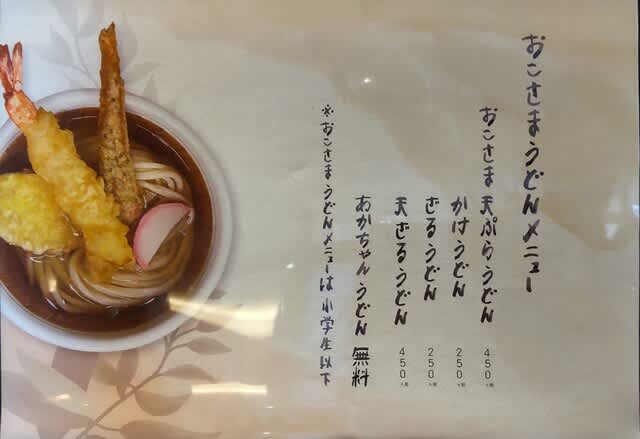 おこさまうどんメニュー
おこさま天ぷらうどん 450
かけうどん 250
ざるうどん 250
天ざるうどん 450
あかちゃんうどん 無料
※おこさまうどんメニューは小学生以下